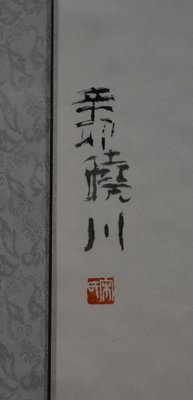 辛卯曉川